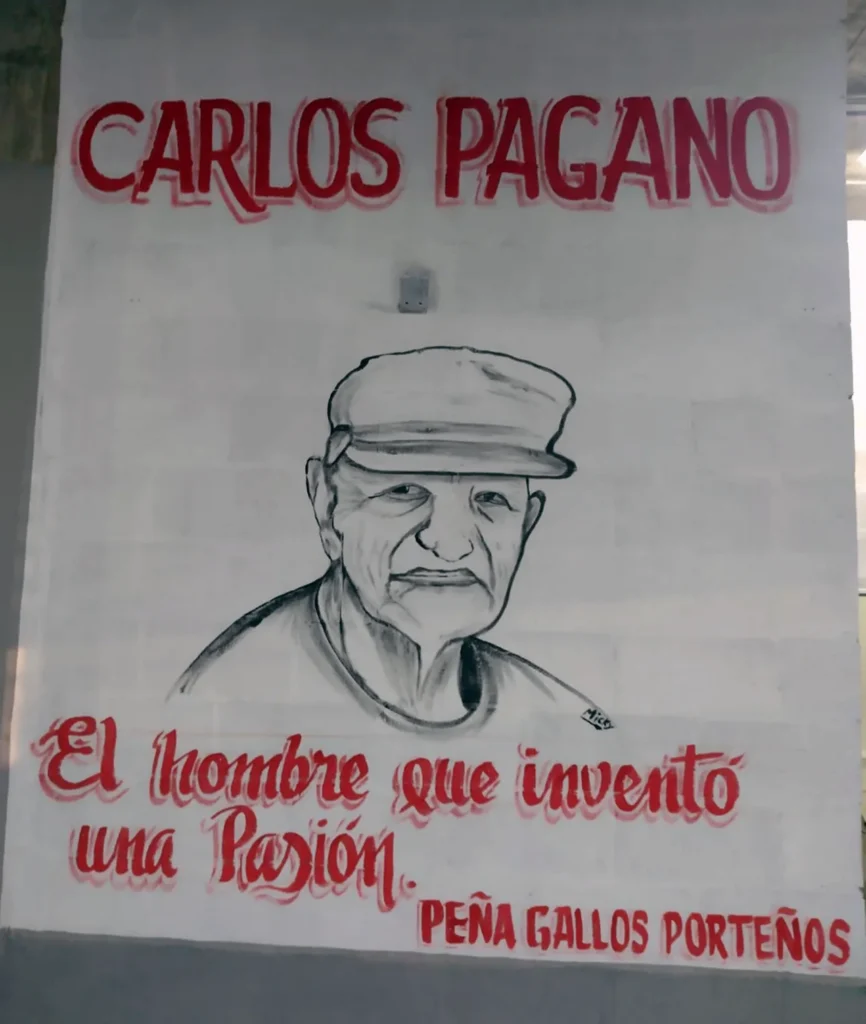 CARLOS PAGANO
Mico
El hombre que inventó
una Pasión.
PEÑA GALLOS PORTEÑOS